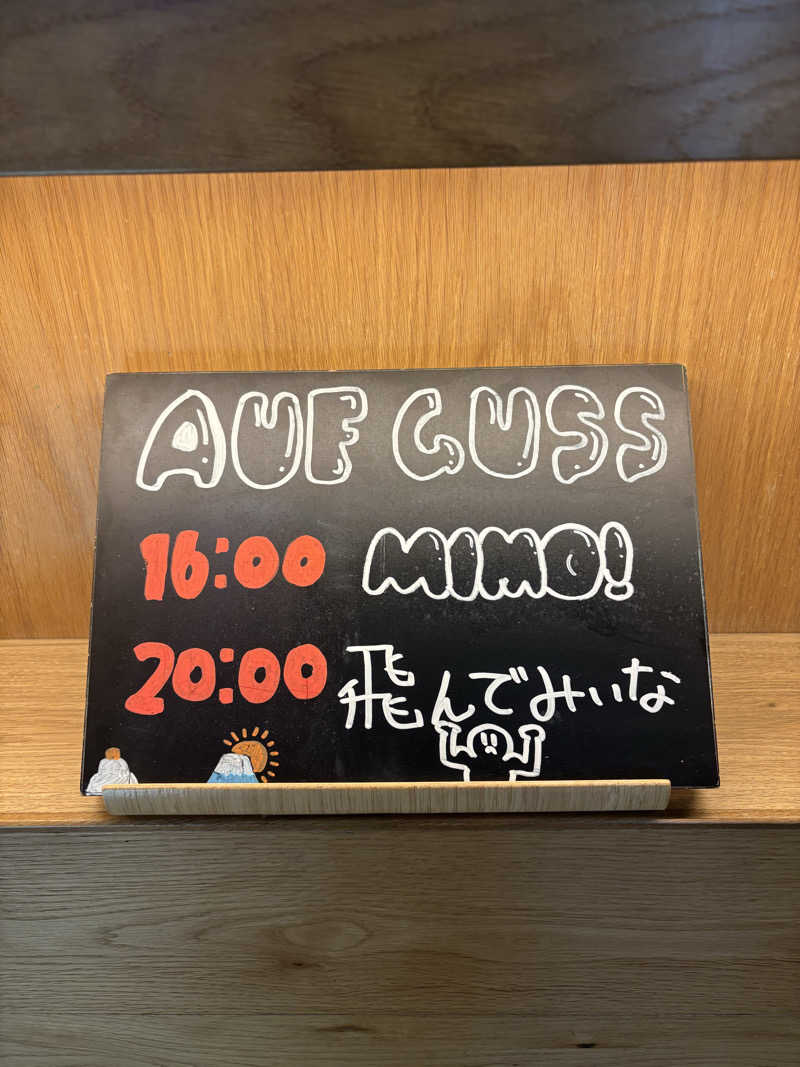 AUFGUSS
16:00 MIMO!
20:00 飛んでみぃな